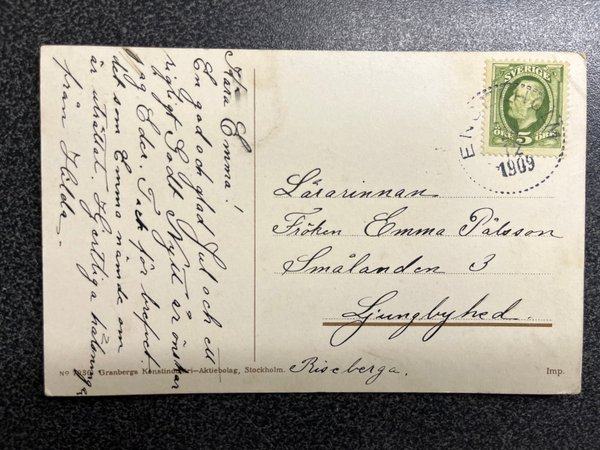 Kära Emma!
En god och glad Jul och ett
rigtigt Godt Nytt år önskar
jag Eder. Tack för brefvet
det som Emma nämde om
är uträttat. Hjertliga hälsningar
från Hilda.
SVERIGE
5
ÖRE
1909
Lärarinnan
Fröken Emma Pålsson
Smålanden 3
Ljungbyhed.
Riseberga.
Granbergs Konstindustri-Aktiebolag, Stockholm.
Imp.